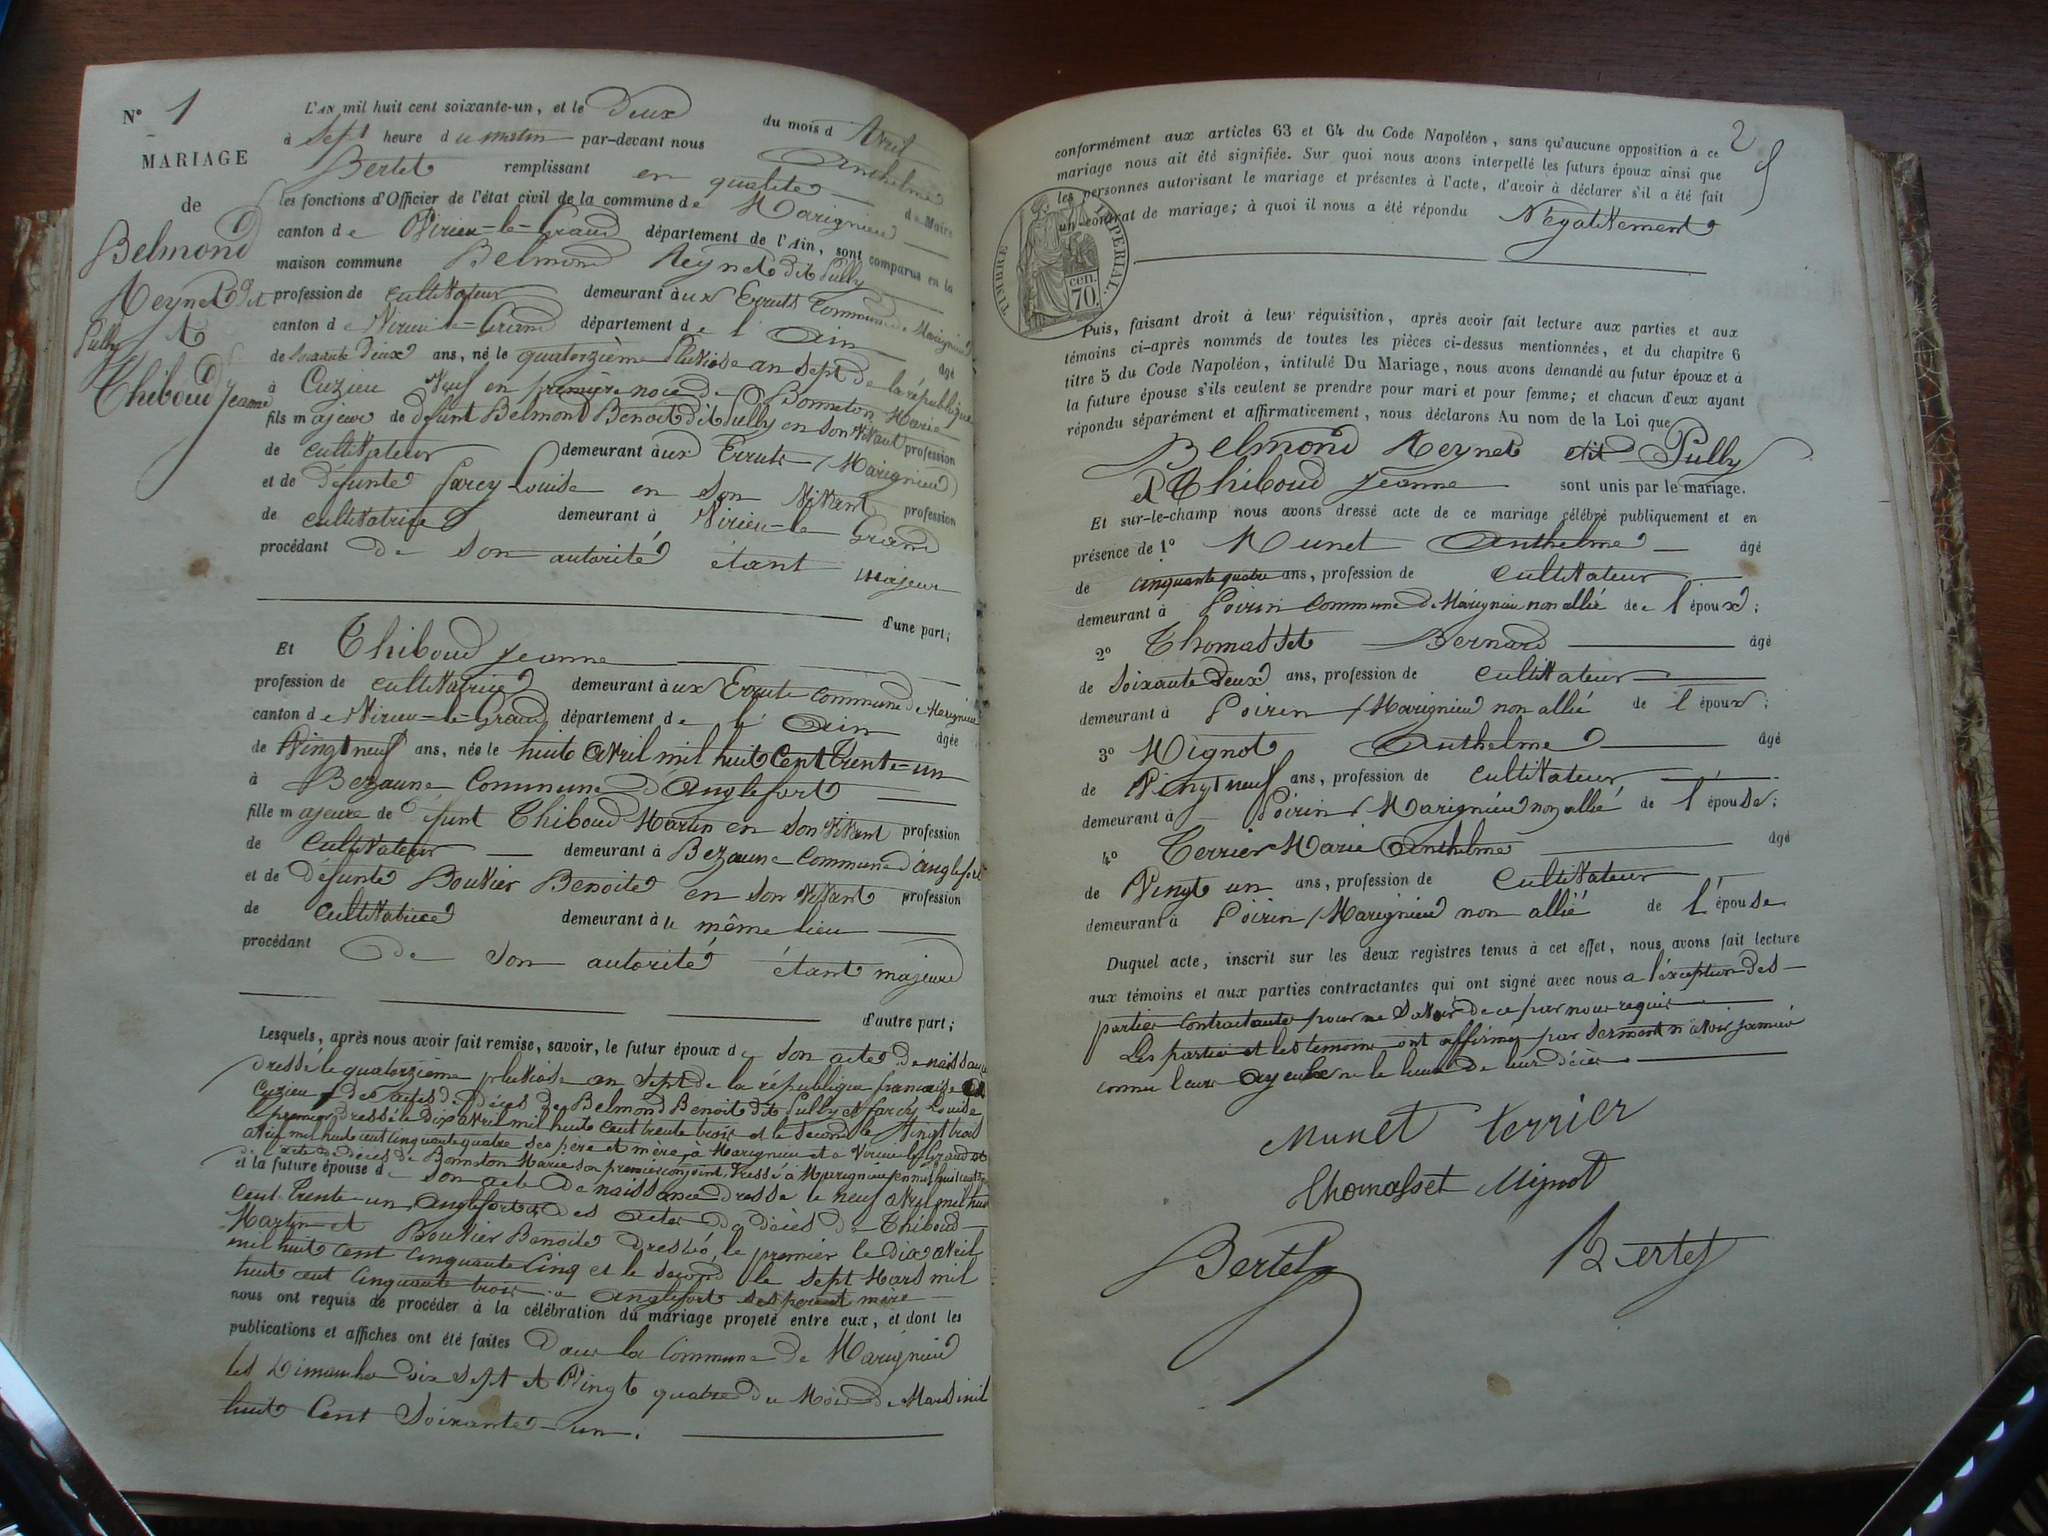 N° 1
MARIAGE
de
Belmond
Reynet dit
Pully
et
Thiboud Jeanne
L'AN mil huit cent soixante-un, et le Deux du mois d Avril
à Sept heure du matin par-devant nous Anthelme
Bertet remplissant en qualité de Maire
les fonctions d'Officier de l'état civil de la commune de Marignieu
canton de Virieu-le-Grand département de l'Ain, sont comparus en la
maison commune Belmond Reynet dit Pully
profession de cultivateur demeurant aux Erruts Commune de Marignieu
canton de Virieu-le-Grand département de l'Ain âgé
de soixante deux ans, né le quatorzième Pluviose an sept de la république
à Cuzieu Veuf en première noce de Bonneton Marie
fils majeur de défunt Belmond Benoit dit Pully en son vivant profession
de cultivateur demeurant aux Erruts (Marignieu)
et de défunte Farcy Louise en son vivant profession
de cultivatrice demeurant à Virieu-le-Grand
procédant de son autorité étant majeur
d'une part;
Et Thiboud Jeanne
profession de cultivatrice demeurant aux Erruts commune de Marignieu
canton de Virieu-le-Grand département de l'Ain âgée
de Vingt neuf ans, née le huit avril mil huit cent trente-un
à Bezaune Commune d'Anglefort
fille majeure de défunt Thiboud Martin en son vivant profession
de cultivateur demeurant à Bezaune commune d'anglefort
et de défunte Bouvier Benoite en son vivant profession
de cultivatrice demeurant au même lieu
procédant de son autorité étant majeure
d'autre part;
Lesquels, après nous avoir fait remise, savoir, le futur époux de son acte de naissance
dressé le quatorzième pluviose an sept de la république française à
Cuzieu des actes de décès de Belmond Benoit dit Pully et Farcy Louise
le premier dressé le dix avril mil huit cent trente trois et le second le vingt trois
avril mil huit cent cinquante quatre ses père et mère, à Marignieu et à Virieu le Grand et
l'acte de décès de Bonneton Marie son premier conjoint dressé à Marignieu en mil huit cent
et la future épouse de son acte de naissance dressé le neuf avril mil huit
cent trente-un, anglefort et des actes de décès de Thiboud
Martin et Bouvier Benoite dressé, le premier le dix avril
mil huit cent cinquante cinq et le second le sept Mars mil
huit cent cinquante trois à anglefort ses père et mère
nous ont requis de procéder à la célébration du mariage projeté entre eux, et dont les
publications et affiches ont été faites Dans la Commune de Marignieu
les Dimanches dix sept et Vingt quatre du Mois de Mars mil
huit Cent Soixante-un.
2
conformément aux articles 63 et 64 du Code Napoléon, sans qu'aucune opposition à ce
mariage nous ait été signifiée. Sur quoi nous avons interpellé les futurs époux ainsi que
les personnes autorisant le mariage et présentes à l'acte, d'avoir à déclarer s'il a été fait
un contrat de mariage; à quoi il nous a été répondu Négativement
TIMBRE IMPERIAL.
70 cen.
Puis, faisant droit à leur réquisition, après avoir fait lecture aux parties et aux
témoins ci-après nommés de toutes les pièces ci-dessus mentionnées, et du chapitre 6
titre 5 du Code Napoléon, intitulé Du Mariage, nous avons demandé au futur époux et à
la future épouse s'ils veulent se prendre pour mari et pour femme; et chacun d'eux ayant
répondu séparément et affirmativement, nous déclarons Au nom de la Loi que
Belmond Reynet dit Pully
et Thiboud Jeanne sont unis par le mariage.
Et sur-le-champ nous avons dressé acte de ce mariage célébré publiquement et en
présence de 1° Munet Anthelme âgé
de cinquante quatre ans, profession de cultivateur
demeurant à Poirin commune de Marignieu non allié de l'époux;
2° Thomasset Bernard âgé
de soixante deux ans, profession de cultivateur
demeurant à Poirin (Marignieu) non allié de l'époux;
3° Mignot Anthelme âgé
de Vingt neuf ans, profession de cultivateur
demeurant à Poirin (Marignieu) non allié de l'épouse;
4° Terrier Marie Anthelme âgé
de Vingt un ans, profession de cultivateur
demeurant à Poirin (Marignieu) non allié de l'épouse
Duquel acte, inscrit sur les deux registres tenus à cet effet, nous avons fait lecture
aux témoins et aux parties contractantes qui ont signé avec nous a l'exception des
parties contractantes pour ne savoir de ce par nous requis
Les parties et les temoins ont affirmés par serment n'avoir jamais
connu leurs ayeux ni le lieu de leur décès.
Munet terrier
Thomasset Mignot
Bertet Bertet